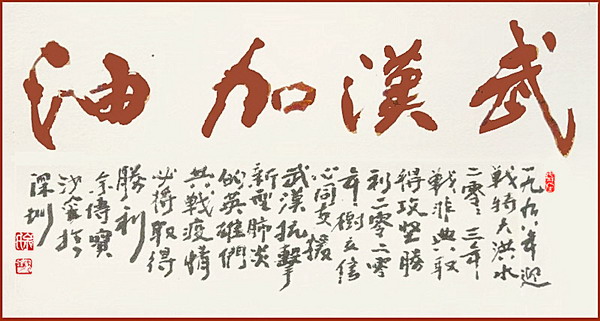 武漢加油
一九九八年迎
戰特大洪水
二零〻三年
戰非典取
得攻堅勝
利二零二零
年樹立信
心同支援
武漢抗擊
新型肺炎
的英雄們
共戰疫情
必將取得
勝利
余傳寶
於
深圳